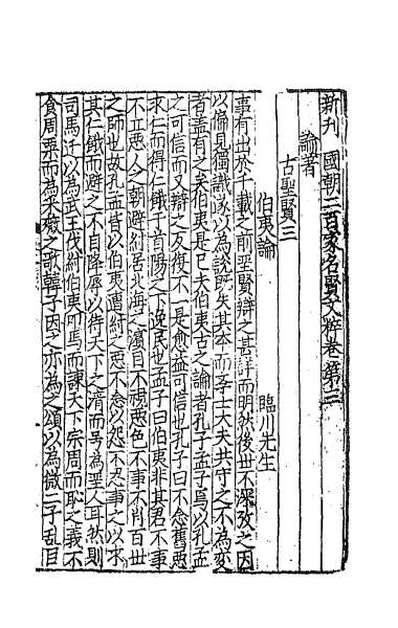 新刊國朝二百家名賢文粹卷第三
論著
古聖賢三
伯夷論 臨川先生
事有出於千載之前聖賢辯之甚詳而明然後世不深攷之因
以偏見獨識遂以為說旣失其本而學士大夫共守之不為變
者蓋有之矣伯夷是已夫伯夷古之論者孔子孟子焉以孔孟
之可信而又辯之反復不一是愈益可信也孔子曰不念舊惡
求仁而得仁餓于首陽之下逸民也孟子曰伯夷非其君不事
不立惡人之朝避紂居北海之濱目不視惡色不事不肖百世
之師也故孔孟皆以伯夷遭紂之惡不念以怨不忍事之以求
其仁餓而避之不自降辱以待天下之清而号為聖人耳然則
司馬迁以為武王伐紂伯夷叩馬而諫天下宗周而恥之義不
食周粟而為采薇之歌韓子因之亦為之頌以為微二子乱臣